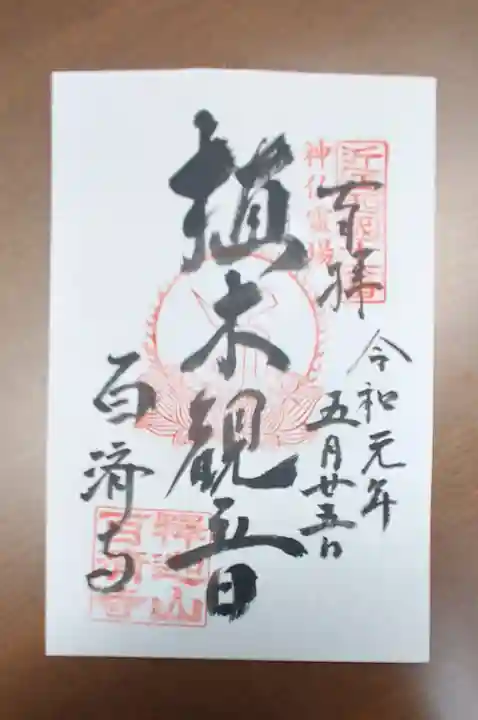 奉拝
令和元年
五月廿五日
神仏霊場
植木観音
百済寺
釋迦山
百済寺